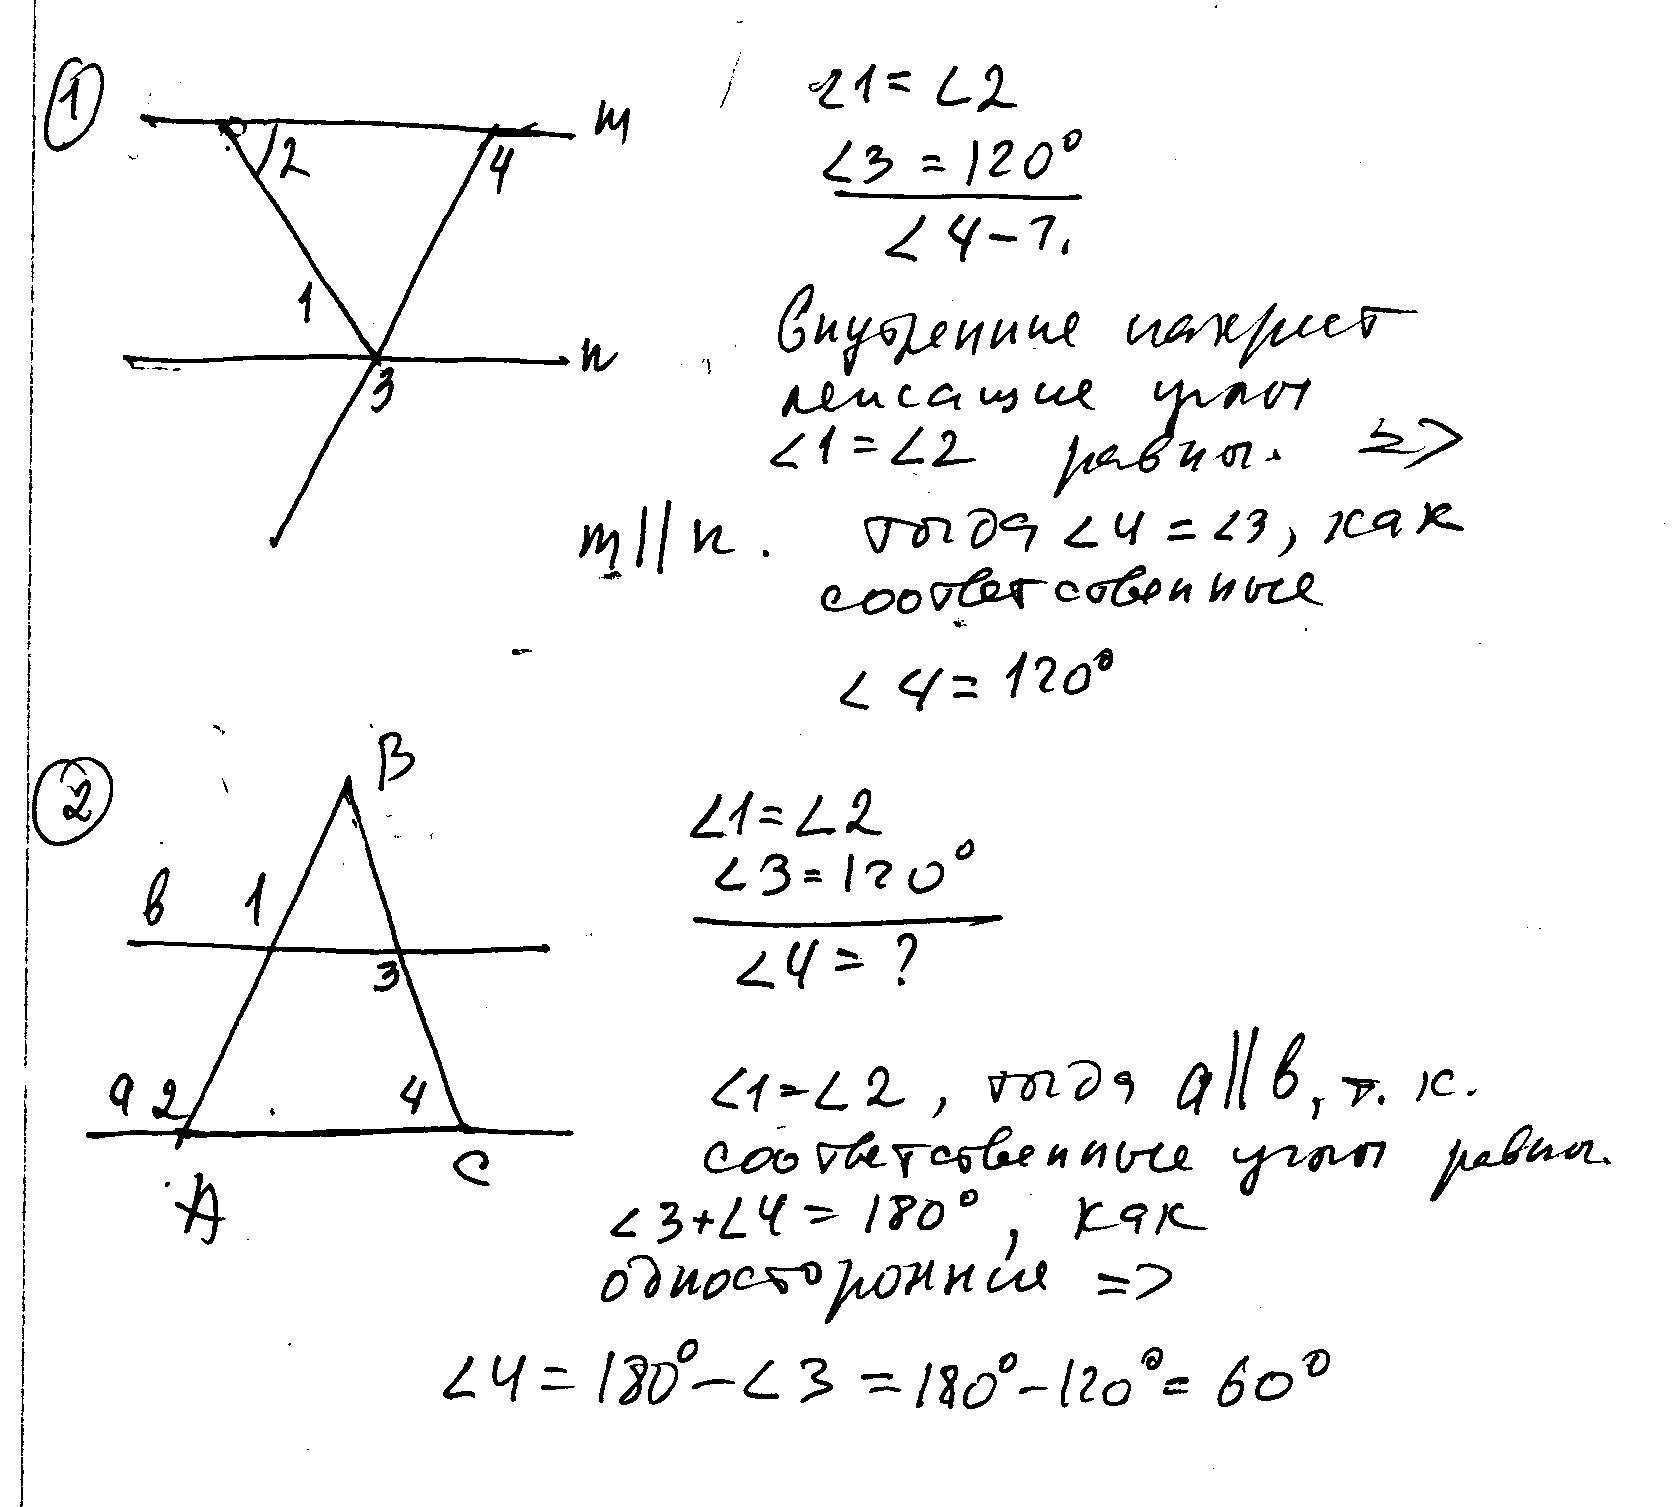 1
m
2
4
1
n
3
∠1 = ∠2
∠3 = 120°
∠4 - ?
Внутренние накрест
лежащие углы
∠1 = ∠2 равны. =>
m || n. тогда ∠4 = ∠3, как
соответственные
∠4 = 120°
2
B
в 1
3
a 2
4
A
C
∠1 = ∠2
∠3 = 120°
∠4 = ?
∠1 = ∠2, тогда a || в, т. к.
соответственные углы равны.
∠3 + ∠4 = 180°, как
односторонние =>
∠4 = 180° - ∠3 = 180° - 120° = 60°